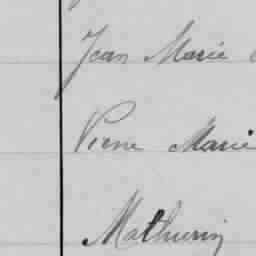 Jean Marie
Pierre Marie
Mathurin